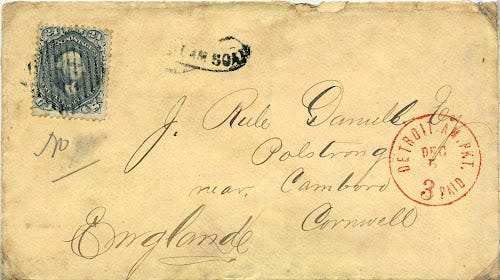 24 24
No
J. Rule Daniell Esq
Polstrong
near Cambord
Cornwell
Englande
DETROIT AM. PKT.
DEC
3 PAID